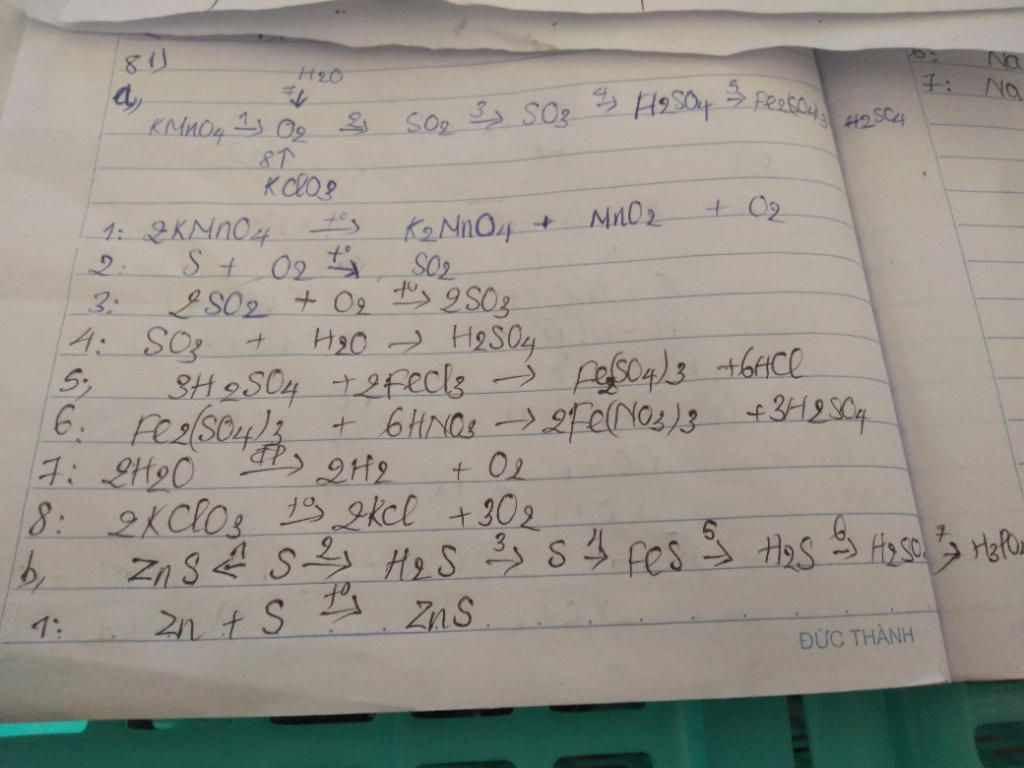 81)
a,
H2O
7↓
KMnO4 1→ O2 2→ SO2 3→ SO3 4→ H2SO4 5→ Fe2(SO4)3 H2SO4
8↑
KClO3
1: 2KMnO4 t°→ K2MnO4 + MnO2 + O2
2: S + O2 t°→ SO2
3: 2SO2 + O2 t°→ 2SO3
4: SO3 + H2O → H2SO4
5, 3H2SO4 + 2FeCl3 → Fe2(SO4)3 + 6HCl
6: Fe2(SO4)3 + 6HNO3 → 2Fe(NO3)3 + 3H2SO4
7: 2H2O đp→ 2H2 + O2
8: 2KClO3 t°→ 2KCl + 3O2
b, ZnS ←1 S 2→ H2S 3→ S 4→ FeS 5→ H2S 6→ H2SO4 7→ H3PO4
1: Zn + S t°→ ZnS
ĐỨC THÀNH
6: Na
7: Na